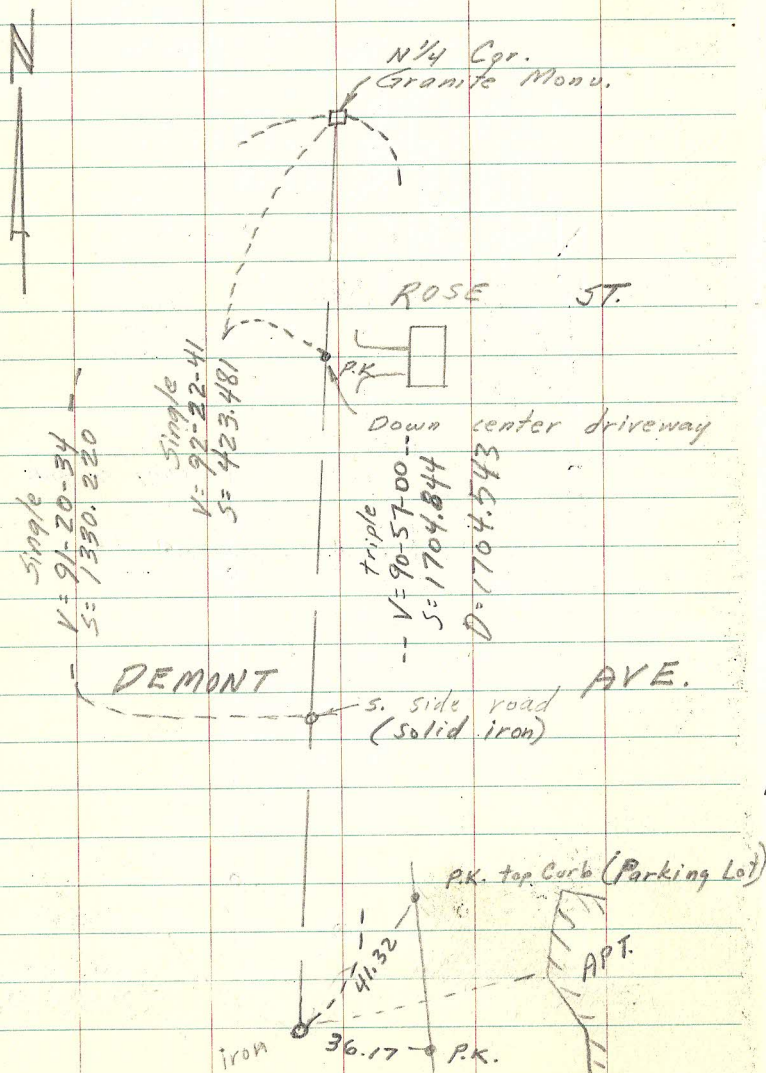 N
N 1/4 Cor.
Granite Monu.
ROSE ST.
P.K.
Down center driveway
Single
V= 92-22-41
S= 423.481
Single
V= 91-20-34
S= 1330.220
triple
V= 90-57-00
S= 1704.844
D= 1704.543
DEMONT AVE.
S. side road
(solid iron)
P.K. top Curb (Parking Lot)
41.32
APT.
iron
36.17
P.K.